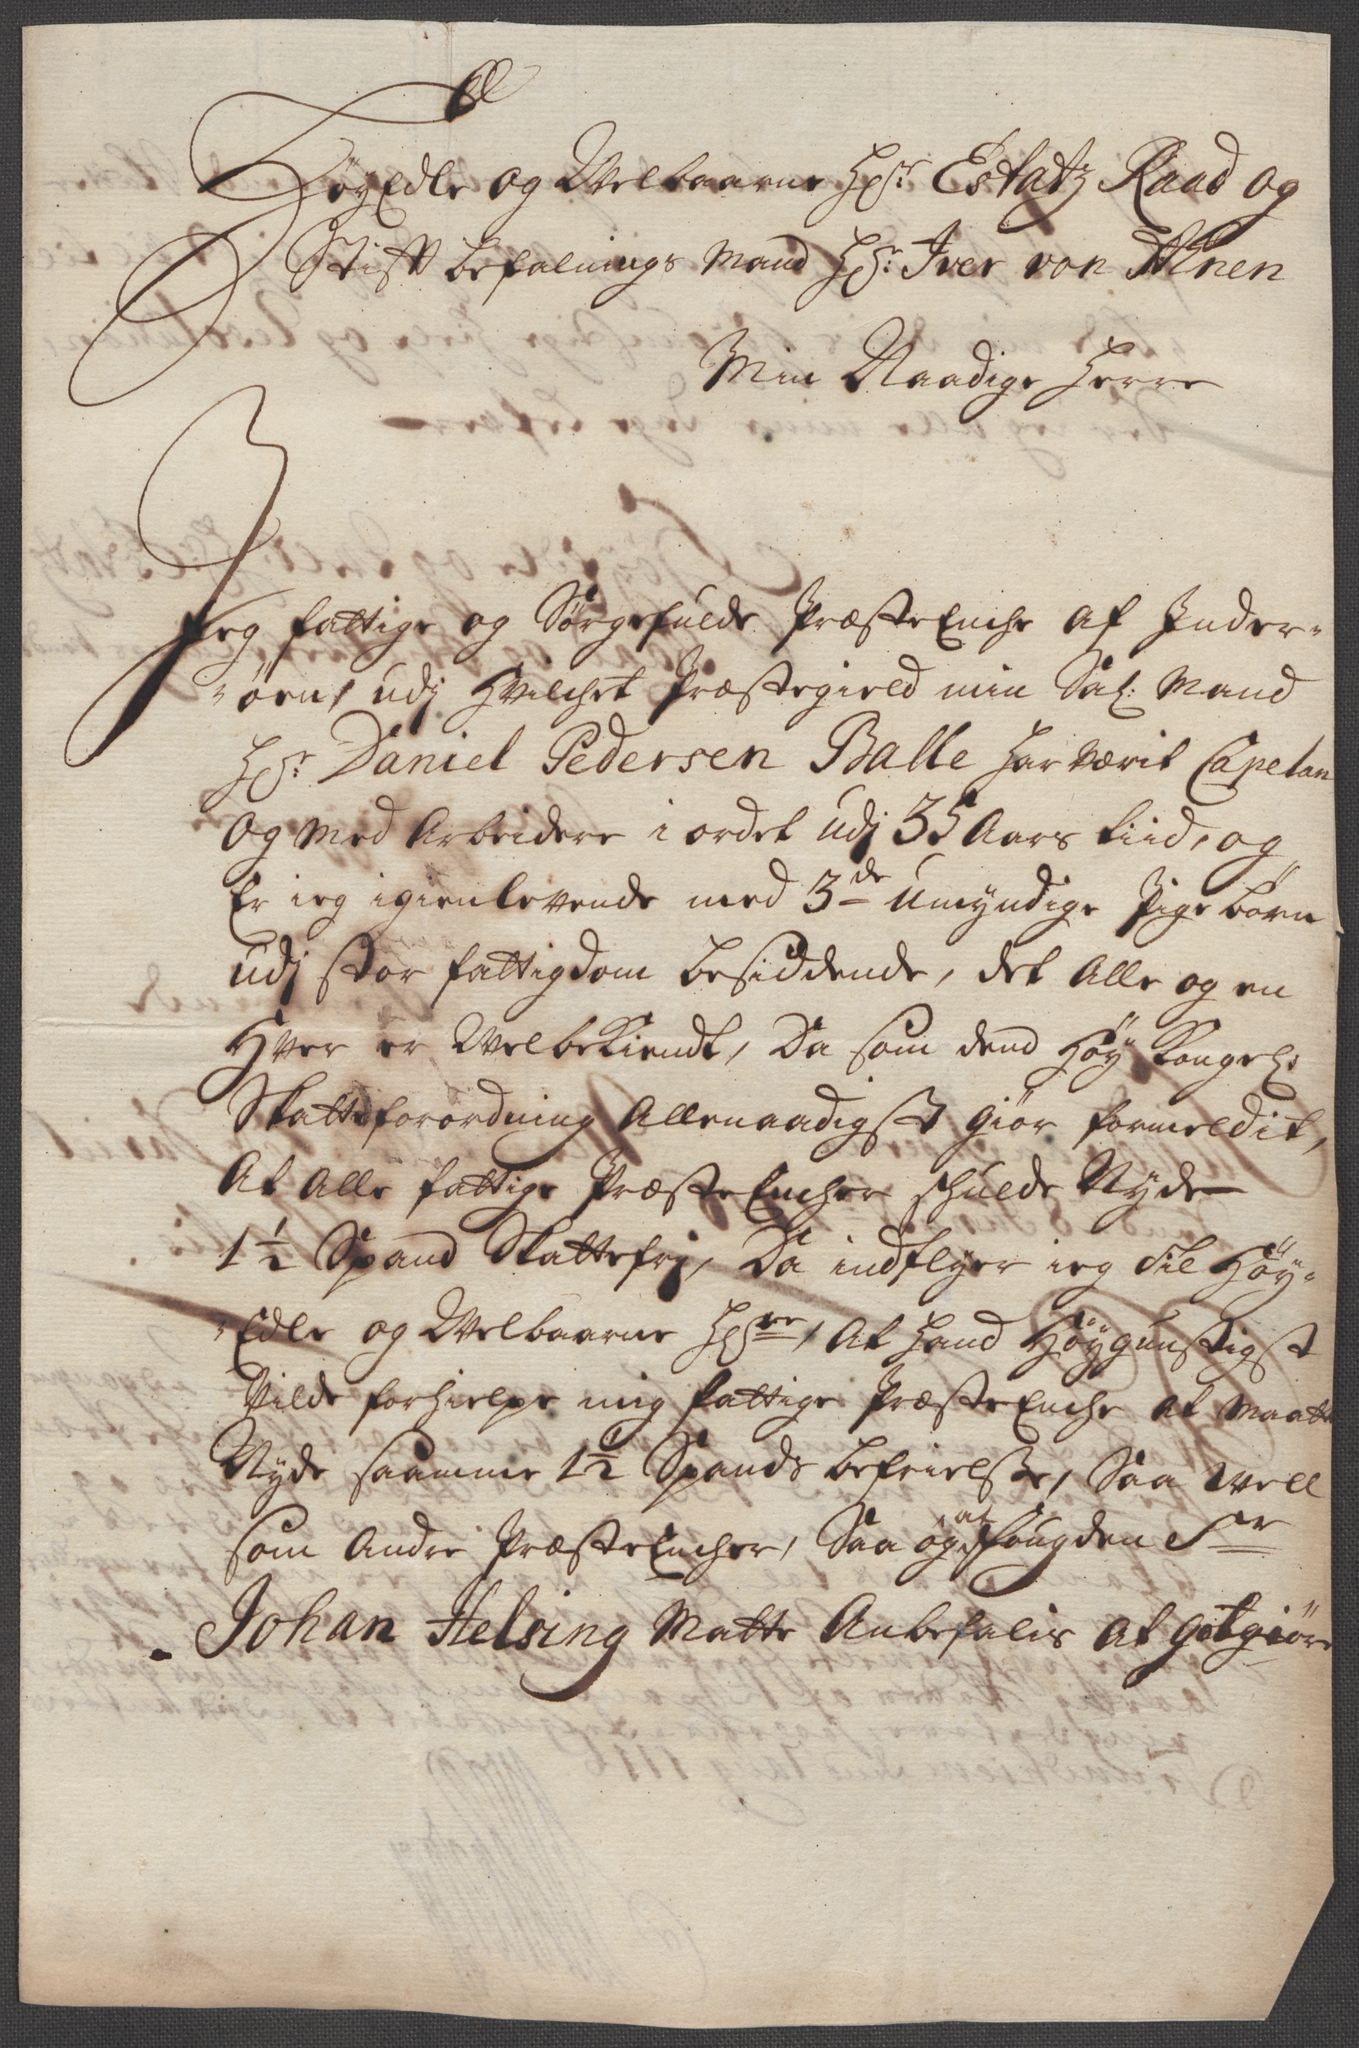 HøyEdle og Welbaarne Hr: Estatz Raad og
Stift befalnings Mand Hr: Iver von Ahnen
Min Naadige Herre
Jeg fattige og Sørgefulde PræsteEnche af Inder-
-øen, udj Hvilchet Præstegield min Sal: Mand
Hr: Daniel Pedersen Balle har værit Capelan
og Med Arbeidere i ordet udj 35 Aars tiid, og
Er ieg igienlevende med 3de Umyndige Pigebørn
udj stor fattigdom besiddende, det Alle og en
Hver er Welbekiendt, Da som dend Høy Kongel:
Skatteforordning Allernaadigst giør formeldit,
At Alle fattige PræsteEncher schulde Nyde
1½ Spand Skattefrj, Da indflyer ieg til Høy-
-Edle og Welbaarne Hrre, At hand Høygunstigst
Vilde forhielpe mig fattige PræsteEnche at Maatte
Nyde saamme 1½ Spands befrielsse, Saa vell
som Andre PræsteEncher, Saa og at Fougden Sr
Johan Helsing Matte Anbefalis At gotgiøre